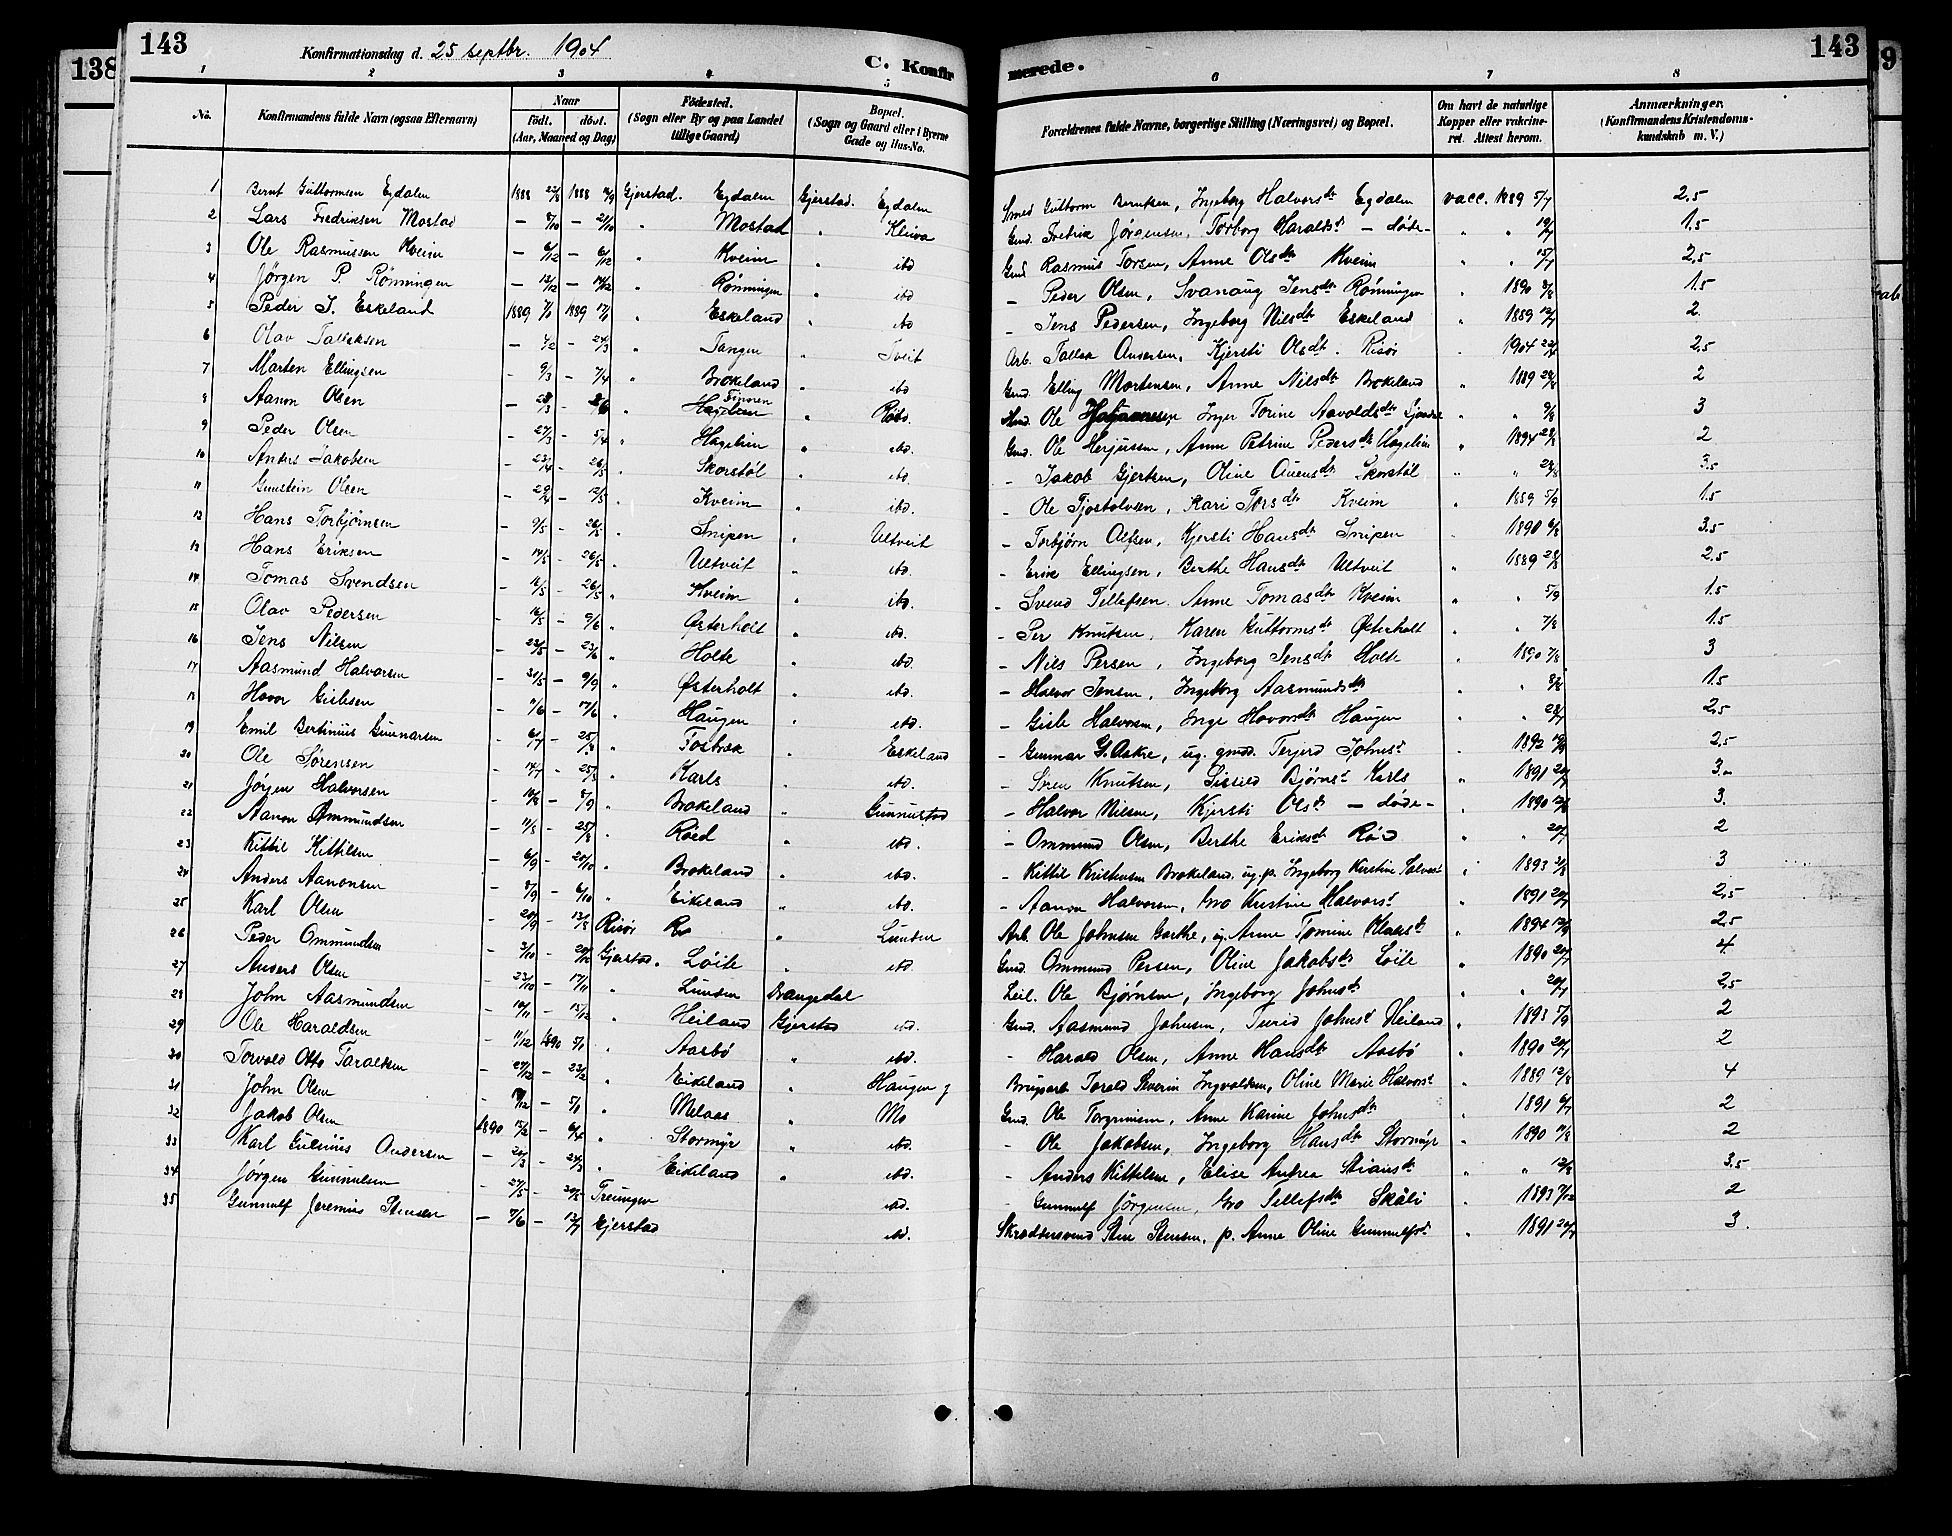 138
143
Konfirmationsdag d. 25 septbr. 1904
C. Konfir
1 2 3 4 5
No.
Konfirmandens fulde Navn (ogsaa Efternavn)
Naar
født. døbt.
(Aar, Maaned og Dag)
Fødested.
(Sogn eller By og paa Landet tillige Gaard)
Bopæl.
(Sogn og Gaard eller i Byerne Gade og Hus-No.
merede.
143
9
6 7 8
Forældrenes fulde Navne, borgerlige Stilling (Næringsvei) og Bopæl.
Om havt de naturlige Kopper eller vakcineret. Attest herom.
Anmærkninger.
(Konfirmandens Kristendomskundskab m. V.)
1 Bernt Guttormsen Egdalen 1888 1888 Gjerstad. Egdalen Gjerstad. Egdalen Smed Guttorm Berntsen, Ingeborg Halvorsdtr Egdalen vacc. 1889 5/7 2,5
2 Lars Fredriksen Mostad – 8/10 – 21/10 " Mostad " Kleiva Gmd. Fredrik Jørgensen, Torborg Haraldsdtr – døde – " " 19/7 1.5
3 Ole Rasmussen Kveim – 6/12 – 6/12 " Kveim " ibd Gmd Rasmus Torsen, Anne Olsdtr Kveim " " 15/7 2,5
4 Jørgen P. Rønningen – 12/12 – 14/12 " Rønningen " ibd – Peder Olsen, Svanaug Jensdtr Rønningen " 1890 8/8 1.5
5 Peder J. Eskeland 1889 1889 " Eskeland " ibd – Jens Pedersen, Ingeborg Nilsdtr Eskeland " 1889 12/7 2.
6 Olav Tallaksen – 1/2 – 24/3 " Tangen " Tveit Arb. Tallak Andersen, Kjersti Olsdt. Risør " 1904 2,5
7 Marten Ellingsen – 9/3 – 7/4 " Brokeland " ibd Gmd Elling Mortensen, Anne Nilsdtr Brokeland " 1889 2
8 Aanon Olsen – – " Røed. Ole Inger Torine Aavoldsdtr " " 9/8 3
9 Peder Olsen – 27/3 – 5/4 " Hagelien " ibd. Gmd. Ole Herjussen, Anne Petrine Pedersdtr Hagelien " 1894 2
10 Anders Jakobsen – 23/4 – 26/5 " Skorstøl " ibd – Jakob Gjertsen, Oline Avensdtr Skorstøl " " 3.5
11 Gunstein Olsen – 29/4 – 12/5 " Kveim " ibd. – Ole Tjostolvsen, Kari Torsdtr Kveim " 1889 5/9 1.5
12 Hans Torbjørnsen – 9/5 – 26/5 " Snipen " Ultveit – Torbjørn Olsen, Kjersti Hansdtr Snipen " 1890 6/8 3.5
13 Hans Eriksen – 14/5 – 26/5 " Ultveit " ibd. – Erik Ellingsen, Berthe Hansdtr Ultveit " 1889 2,5
14 Tomas Svendsen – 16/5 – 26/5 " Kveim " ibd. – Svend Tellefsen. Anne Tomasdtr Kveim " " 5/9 1.5
15 Olav Pedersen – 16/5 – 9/6 " Østerholt " ibd. – Per Knutsen, Karen Guttormsdt Østerholt " " 7/8 1.5
16 Jens Nilsen – 22/5 – 23/6 " Holte " ibd. – Nils Persen, Ingeborg Jensdtr Holte " 1890 7/8 3
17 Aasmund Halvorsen – 31/5 – 9/9 " Østerholt " ibd. – Halvor Jensen, Ingeborg Aasmundsdtr " " 8/8 1.5
18 Hovor Gislesen – 11/6 – 17/6 " Haugen " ibd. – Gisle Halvorsen, Inge Hovorsdtr Haugen " " 2,5
19 Emil Bertinius Gunnarsen – – " Fosbæk " Eskeland – Gunnar G. Aakre, ug. gmd. Terjerd Johnsd " 1892 2,5
20 Ole Sørensen – 14/7 – 25/8 " Karls " ibd. – Søren Knutsen, Sissild Bjørnsd Karls " 1891 20/7 3.
21 Jørgen Halvorsen – 16/8 – 8/9 " Brokeland " Gunnustad – Halvor Nilsen, Kjersti Olsdtr – døde – " 1890 3.
22 Aanon Ommundsen – 11/8 – 25/8 " Røed " ibd. – Ommund Olsen, Berthe Eriksdt Røed " " 20/7 2
23 Kittil Kittilsen – 6/9 – 20/10 " Brokeland " ibd. – Kittil Kristensen Brokeland, ug. p. Ingeborg Kirstine Halvorsd " 1893 3
24 Anders Aanonsen – 8/9 – 6/10 " Eikeland " ibd. – Aanon Halvorsen, Gro Kirstine Halvorsd " 1891 20/7 2,5
25 Karl Olsen – 20/9 – Risør " Lunden Arb. Ole Johnsen Garthe, ug. Anne Tomine Klausd " 1894 2,5
26 Peder Ommundsen – 3/10 – Gjerstad. Løite " ibd Gmd. Ommund Persen, Oline Jakobsdtr Løite " 1890 20/7 4
27 Anders Olsen – 23/10 – 17/11 " Lunden Drangedal Leil. Ole Bjørnsen, Ingeborg Johnsd " " 20/7 2,5
28 John Aasmundsen – 10/11 – 15/12 " Heiland Gjerstad ibd. Gmd. Aasmund Johnsen, Turid Johnsd Heiland " 1893 5/9 2
29 Ole Haraldsen – 11/12 1890 5/1 " Aasbø " ibd. – Harald Olsen, Anne Hansdtr Aasbø " 1890 20/7 2
30 Torvald Otto Taraldsen – 27/12 – 23/2 " Eikeland " Haugen g Brugsarb Torald Severin Ingvaldsen, Oline Marie Halvorsd " 1889 12/8 4
31 John Olsen – – 5/1 " Melaas " Mo Gmd. Ole Torgrimsen, Anne Karine Johnsdtr " 1891 6/7 2
32 Jakob Olsen 1890 15/2 – 6/4 " Stormyr " ibd. – Ole Jakobsen, Ingeborg Hansdtr Stormyr " 1890 11/8 2
33 Karl Gulinius Andersen – – " Eikeland " ibd. – Anders Kittelsen, Elise Andrea Stiansdtr " " 12/8 3.5
34 Jørgen Gunnulsen – 27/5 – Treungen ibd. – Gunnulf Jørgensen, Gro Tellefsdtr Skåli " 1893 7/12 2
35 Gunnulf Jeremius Stensen – 7/6 – 13/7 Gjerstad ibd. Skræddersvend Sten Stensen, p. Anne Oline Gunnulfsd " 1891 20/7 3.